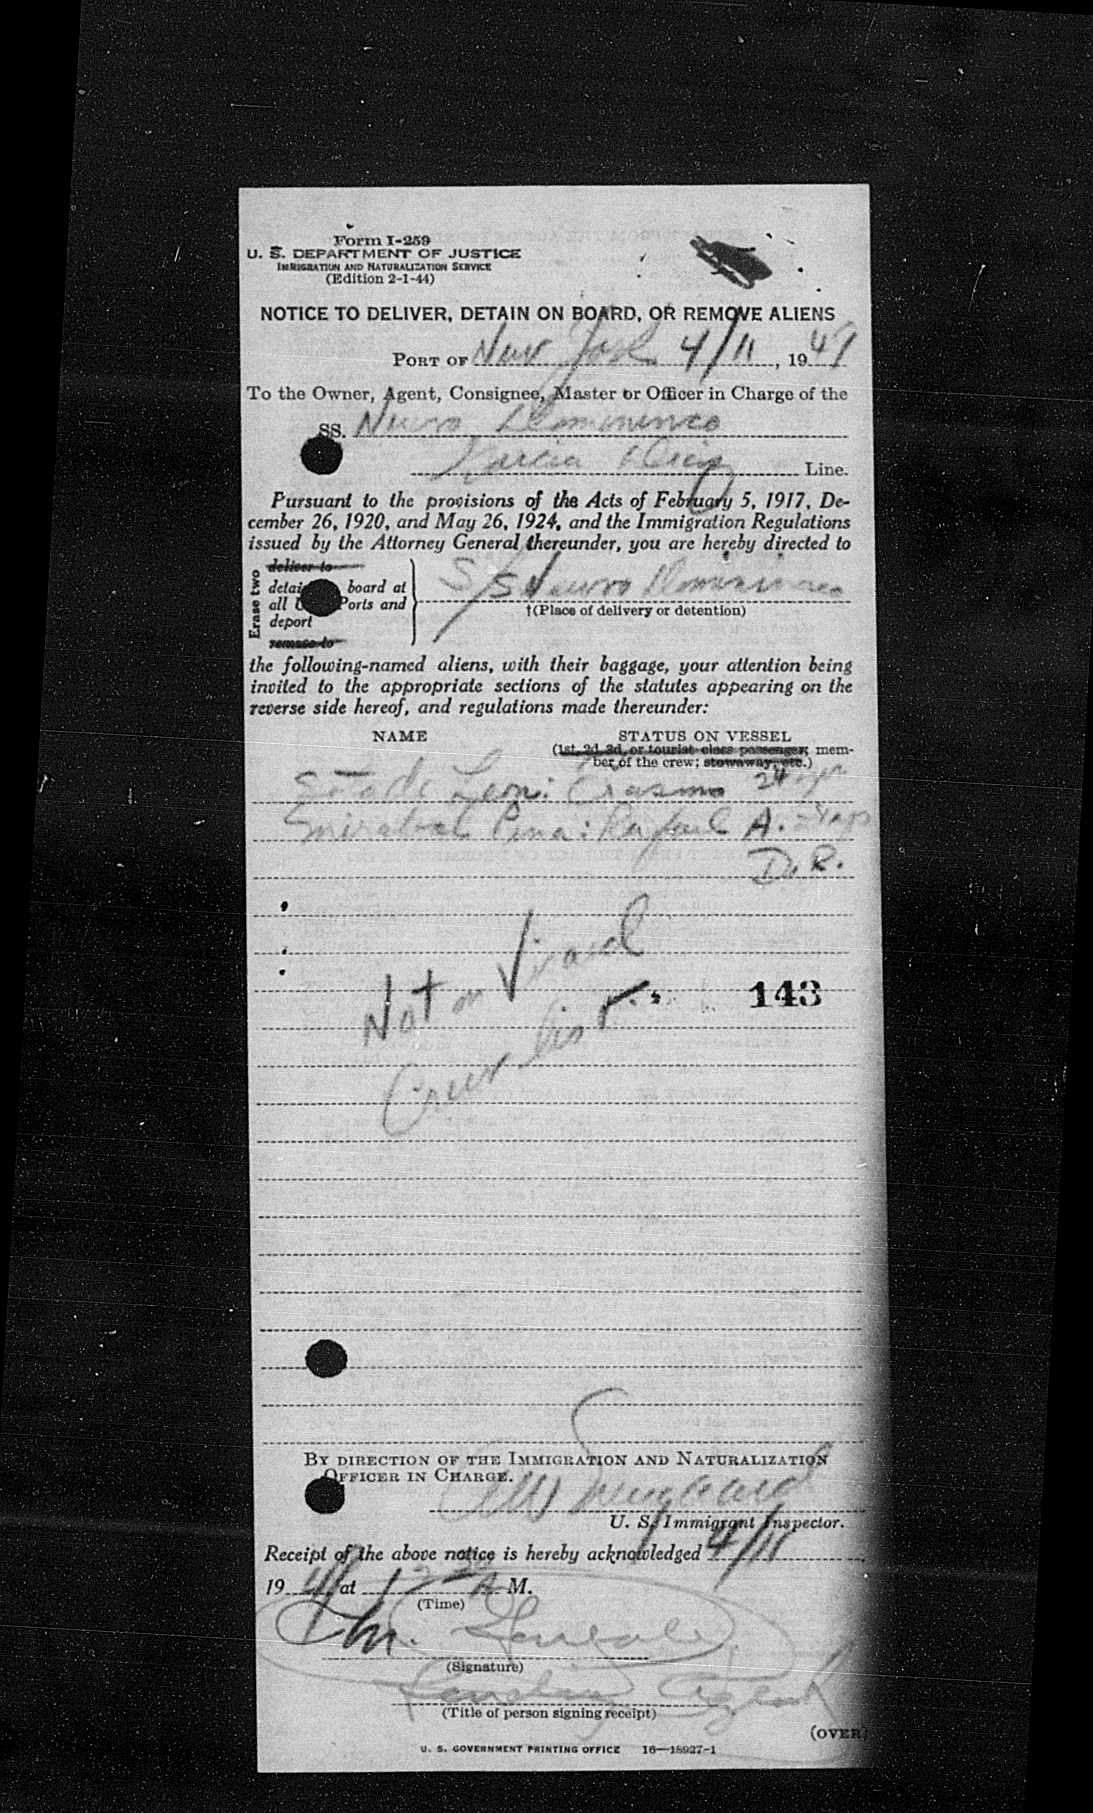 Form I-259
U. S. DEPARTMENT OF JUSTICE
IMMIGRATION AND NATURALIZATION SERVICE
(Edition 2-1-44)
NOTICE TO DELIVER, DETAIN ON BOARD, OR REMOVE ALIENS
PORT OF New York 4/11, 1947
To the Owner, Agent, Consignee, Master or Officer in Charge of the
SS. Nuevo Dominicano
Garcia Diaz Line.
Pursuant to the provisions of the Acts of February 5, 1917, De-
cember 26, 1920, and May 26, 1924, and the Immigration Regulations
issued by the Attorney General thereunder, you are hereby directed to
Erase two
deliver to
detain board at
all Ports and
deport
remove to
S/S Nuevo Dominicano
†(Place of delivery or detention)
the following-named aliens, with their baggage, your attention being
invited to the appropriate sections of the statutes appearing on the
reverse side hereof, and regulations made thereunder:
NAME STATUS ON VESSEL
(1st, 2d, 3d, or tourist class passenger; mem-
ber of the crew; stowaway, etc.)
de Leon: Erasmo 24 yrs
Mirabal Pena: Rafael A. yrs
D. R.
Not on Visaed
Crew list
143
BY DIRECTION OF THE IMMIGRATION AND NATURALIZATION
OFFICER IN CHARGE.
U. S. Immigrant Inspector.
Receipt of the above notice is hereby acknowledged 4/11
1947 at A M.
(Time)
(Signature)
Landing Agent
(Title of person signing receipt)
(OVER)
U. S. GOVERNMENT PRINTING OFFICE 16—18927-1